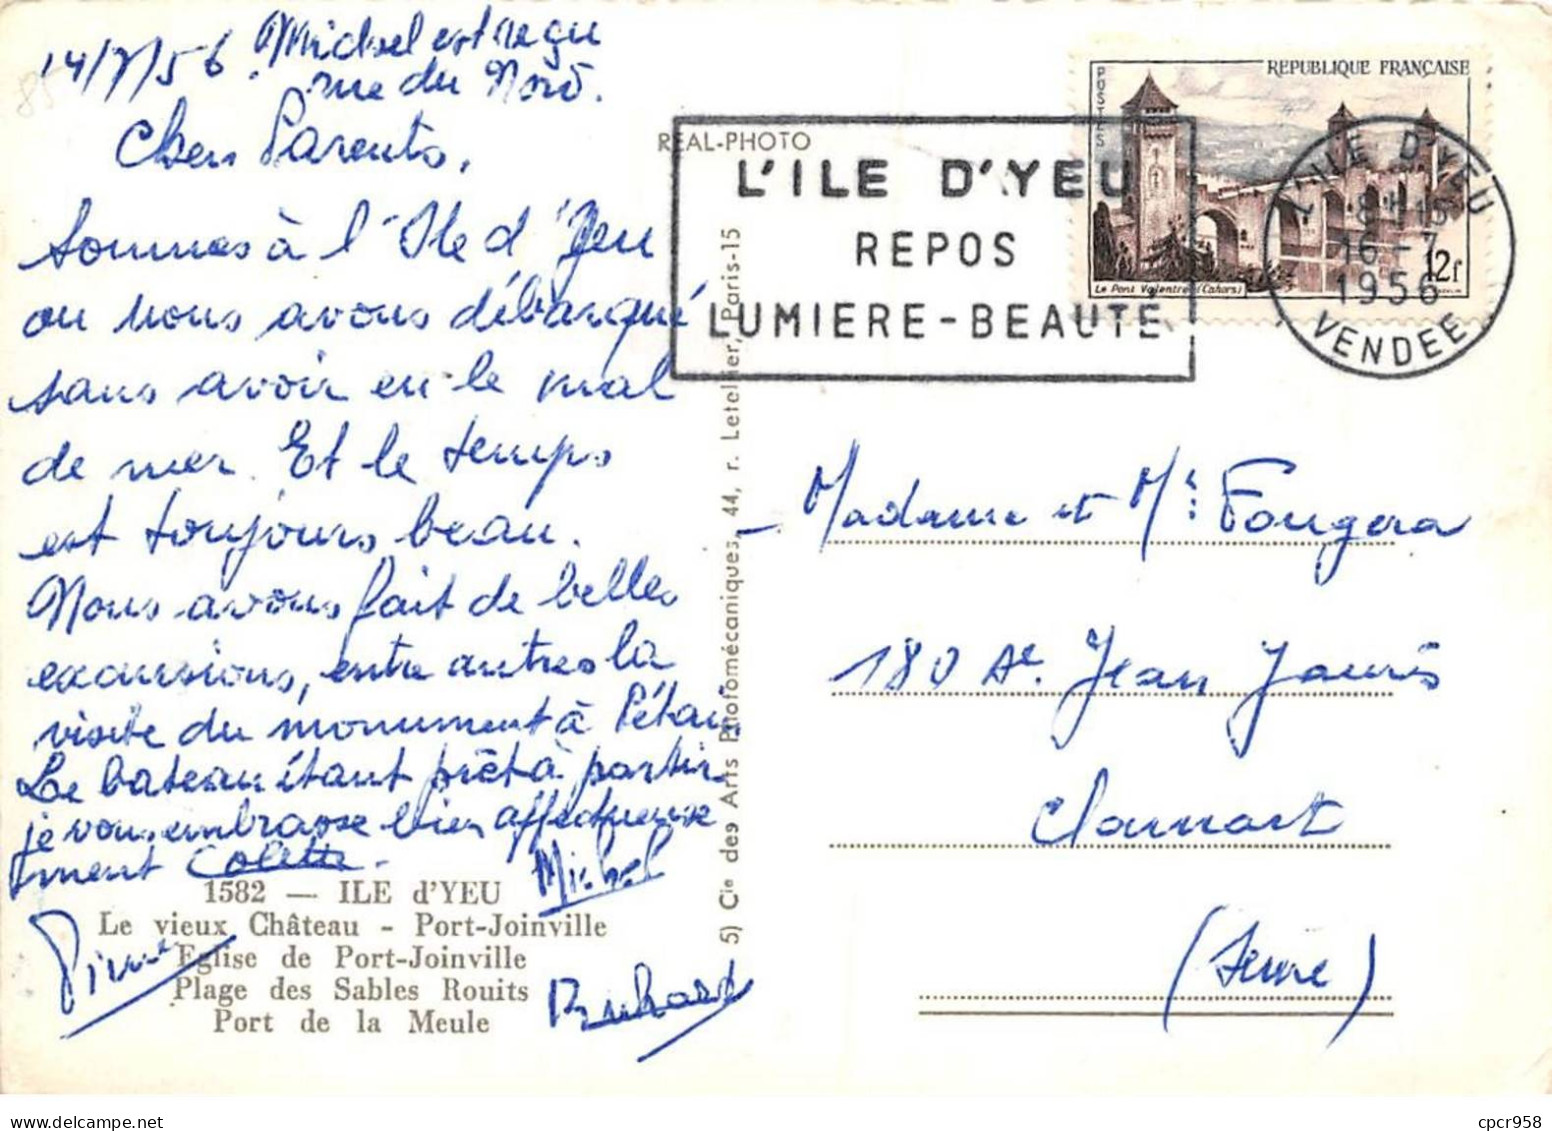 14/7/56 Michel est reçu
rue du Nord.
Chers Parents,
Sommes à l'Ile d'Yeu
ou nous avons débarqué
sans avoir eu le mal
de mer. Et le temps
est toujours beau.
Nous avons fait de belles
excursions, entre autres la
visite du monument à Pétain
Le bateau étant prêt à partir
je vous embrasse bien affectueuse
ment Colette.
Michel
Pierre
1582 — ILE d'YEU
Le vieux Château - Port-Joinville
Eglise de Port-Joinville
Plage des Sables Rouits
Port de la Meule
REAL-PHOTO
5) Cie des Arts Photomécaniques, 44, r. Letellier, Paris-15
L'ILE D'YEU
REPOS
LUMIERE-BEAUTE
REPUBLIQUE FRANÇAISE
POSTES
Le Pont Valentré (Cahors)
12f
L'ILE D'YEU
18H15
16-7
1956
VENDEE
Madame et Mr: Fougera
180 Ae. Jean Jaurès
Clamart
(Seine)
cpcr958